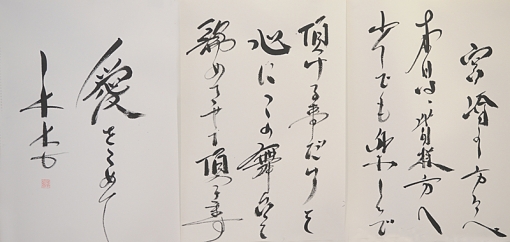 宮崎の方々へ
本日は、皆様方へ
少しでも楽しんで
頂ける事だけを
心にこの舞台を
務めさせて頂きます
愛をこめて